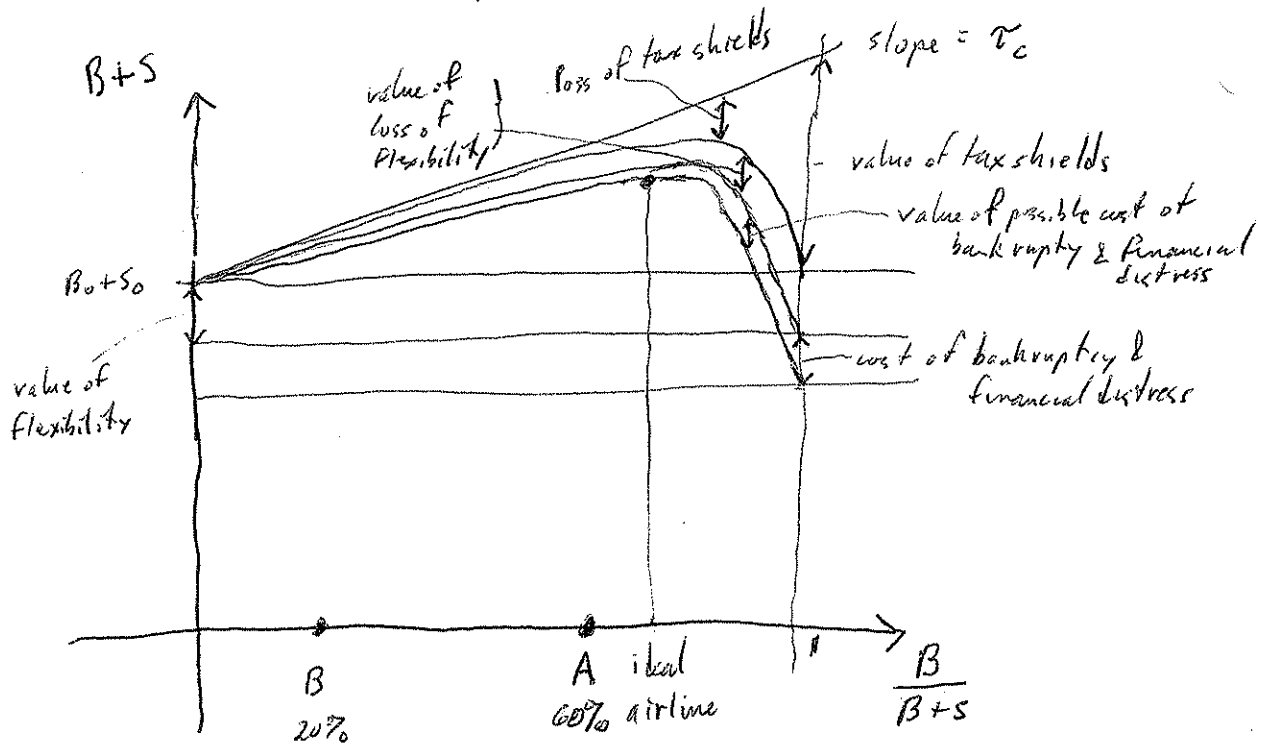 B+S
value of
loss of
flexibility
loss of tax shields
slope = τc
value of tax shields
value of possible cost of
bankrupty & financial
distress
B₀+S₀
value of
flexibility
cost of bankruptcy &
financial distress
B
20%
A
60%
ideal
airline
1
B
B+S